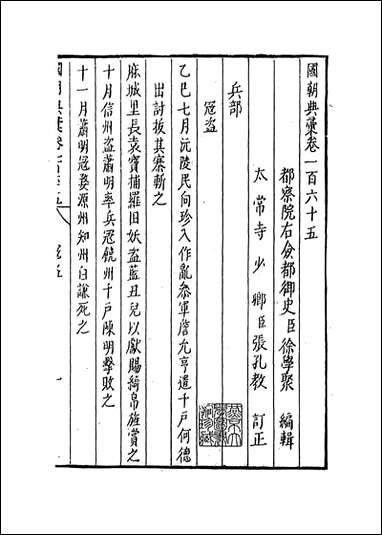 國朝典彙卷一百六十五
都察院右僉都御史臣徐學聚 編輯
太常寺少卿臣張孔教 訂正
兵部
冦盜
乙巳七月沅陵民向珍入作亂叅軍詹允亨遣千戶何德
出討拔其寨斬之
麻城里長袁寶捕羅旧妖盜藍丑兒以獻賜綺帛旌賞之
十月信州盜蕭明率兵冦饒州千戶陳明擊敗之
十一月蕭明冦婺源州知州白謙死之
國朝典彙卷一百六十五